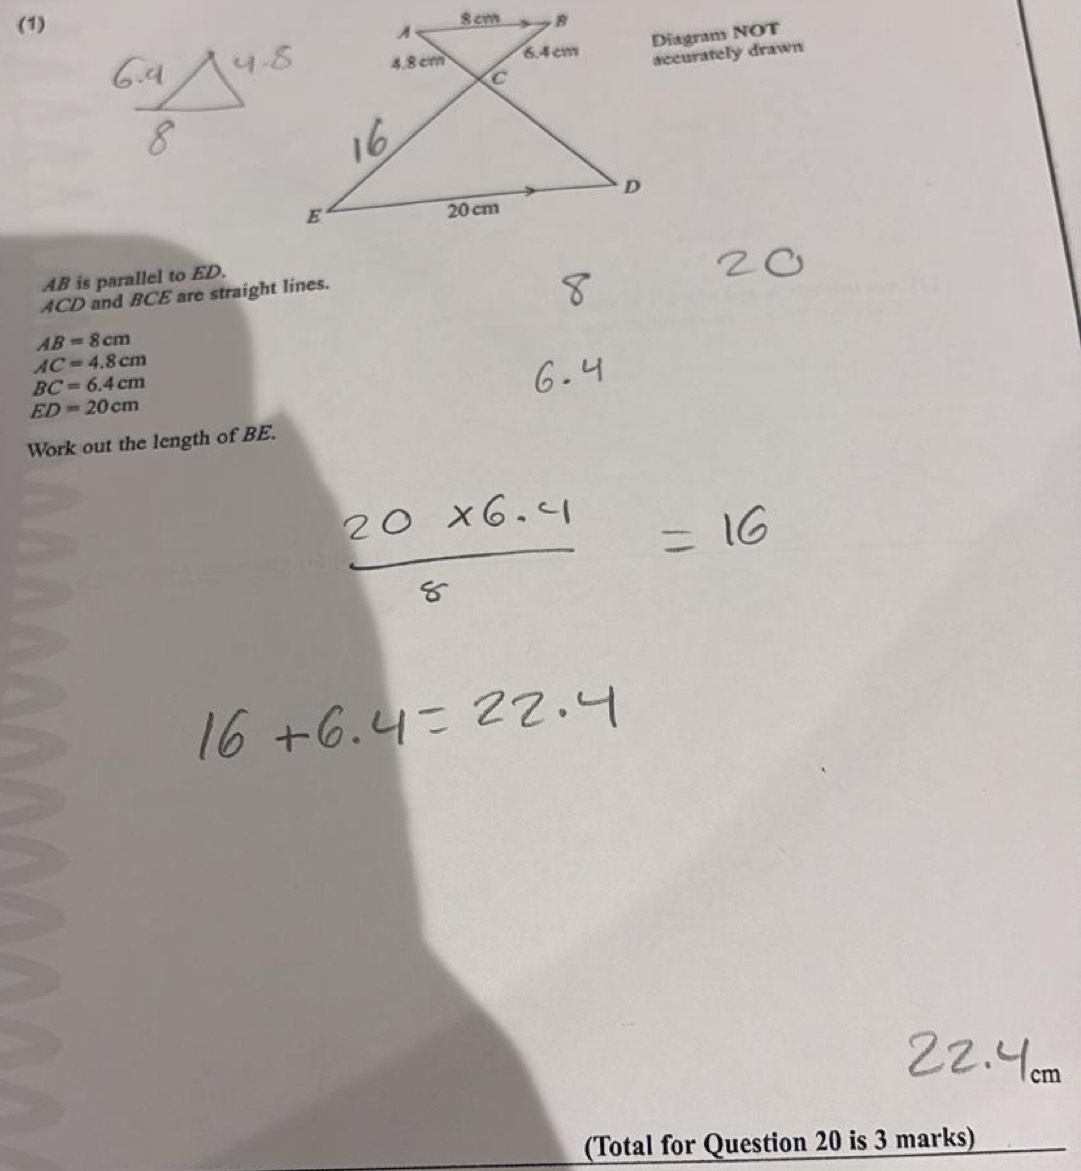 (1)
6.4 4.8
8
A 8 cm B
4.8 cm 6.4 cm
C
16
E 20 cm D
Diagram NOT
accurately drawn
AB is parallel to ED.
ACD and BCE are straight lines.
8 20
6.4
AB = 8 cm
AC = 4.8 cm
BC = 6.4 cm
ED = 20 cm
Work out the length of BE.
20 × 6.4
8
= 16
16 + 6.4 = 22.4
22.4 cm
(Total for Question 20 is 3 marks)